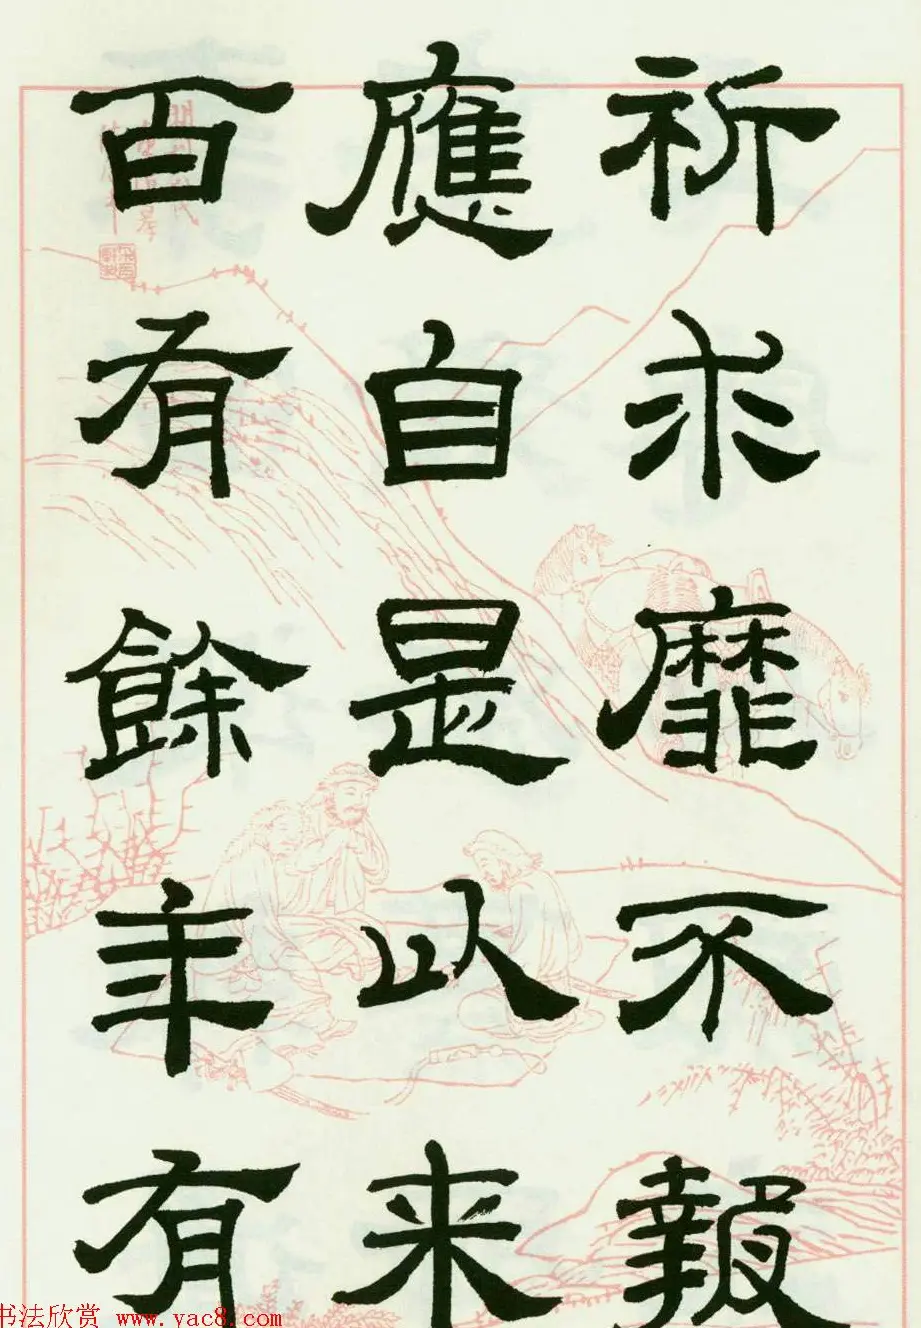 祈求靡不報
應自是以来
百有餘年有
书法欣赏 www.yac8.com